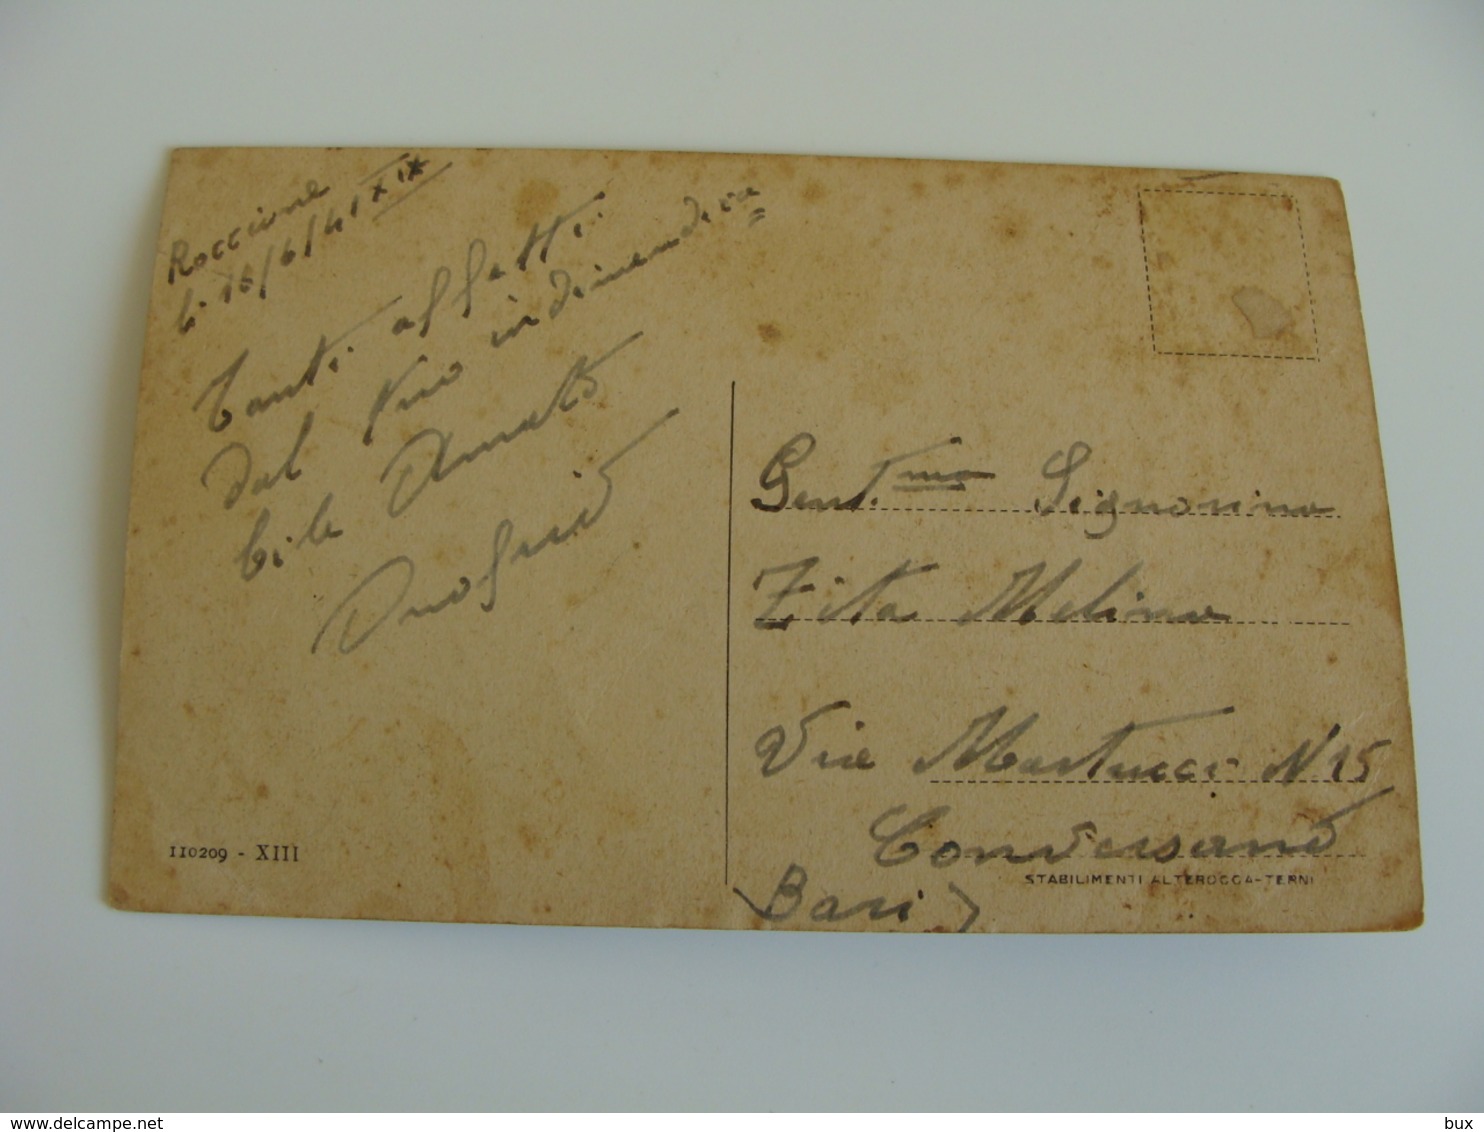 Roccione
li 16/6/41 XIX
Tanti affetti
dal tuo indimendica=
bile Amato
Onofrio
Gent.ma Signorina
Zita Melina
Via Martucci N 15
Conversano
(Bari)
110209 - XIII
STABILIMENTI ALTEROCCA-TERNI
delcampe.net
bux